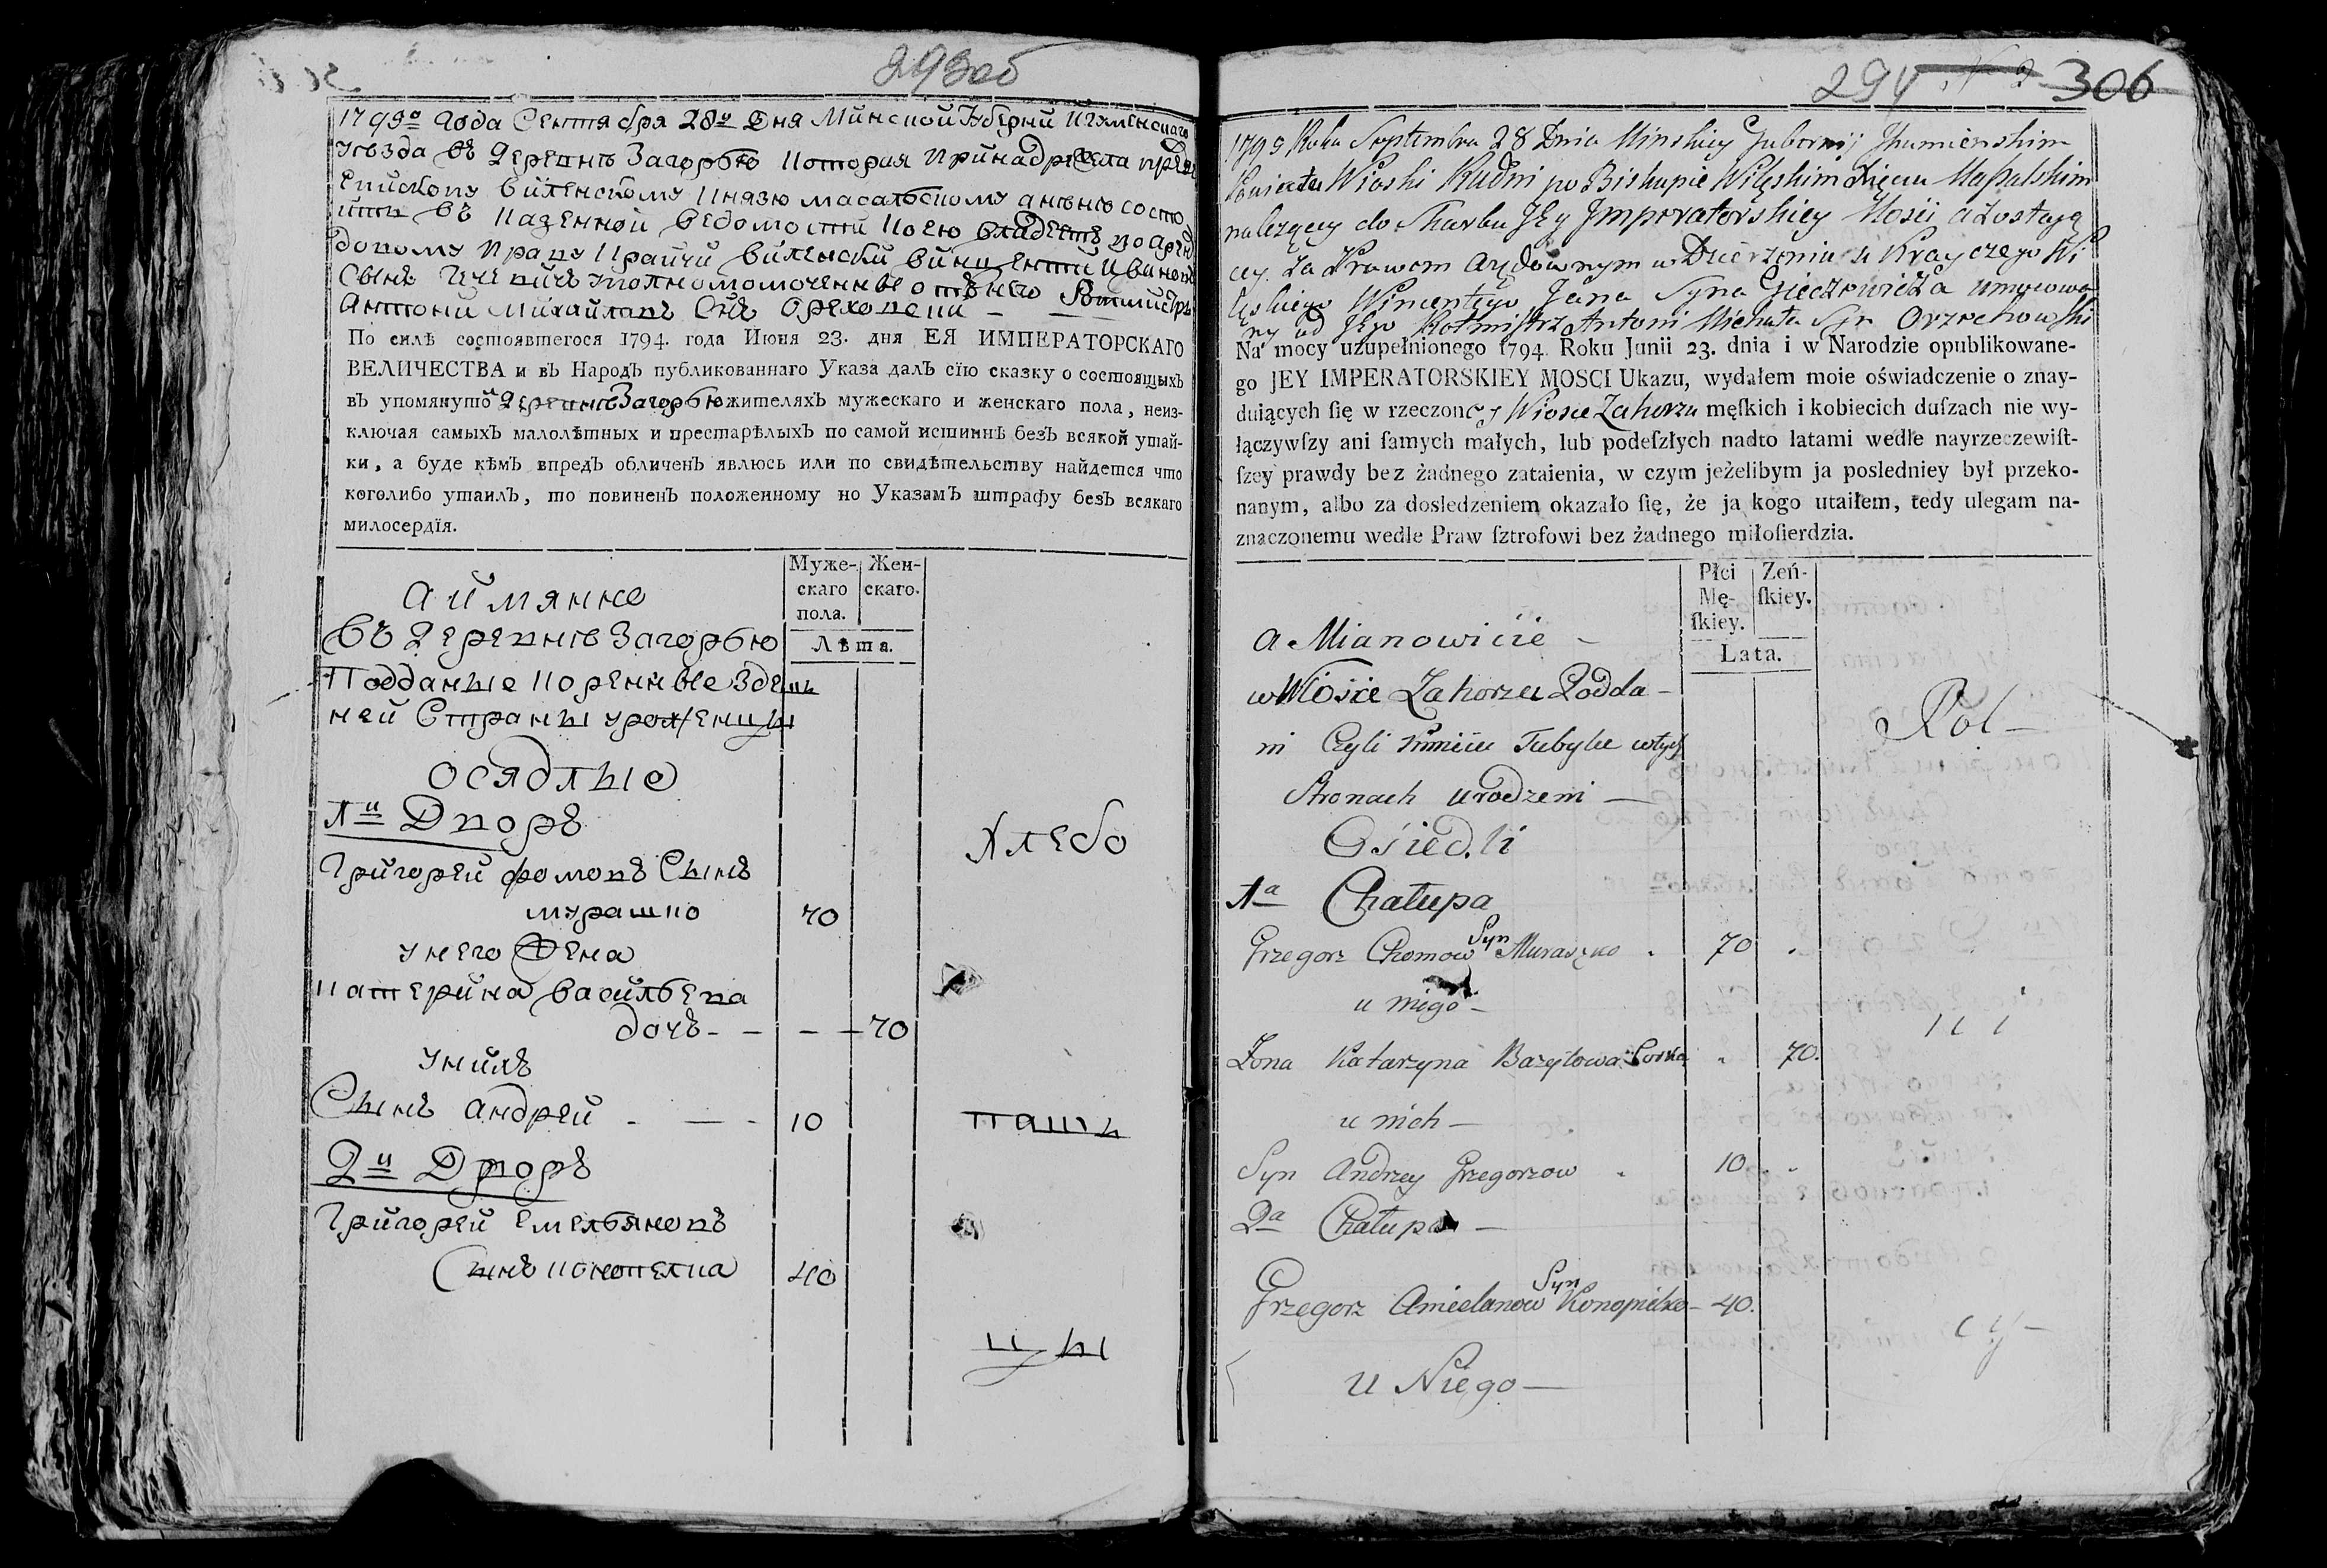 293об
1795º Года Сентября 28º Дня Минской Губерній Игуменскаго
уѣзда въ Деревнѣ Загорью которая принадлежала
Епископу Виленскому Князю Масальскому а нынѣ состо
итъ въ Казенной ведомости коею владеетъ по арен
довному праву Крайчи Виленски Винцентий Ивановъ
Сынъ Гечевичъ уполномомоченные отъ него Ротмистръ
Антоній Михайловъ Сынъ Ореховски
По силѣ состоявшегося 1794. года Июня 23. дня ЕЯ ИМПЕРАТОРСКАГО
ВЕЛИЧЕСТВА и въ Народъ публикованнаго Указа далъ сїю сказку о состоящыхъ
въ упомянутой Деревнѣ Загорью жителяхъ мужескаго и женскаго пола, неиз-
ключая самыхъ малолѣтных и престарѣлыхъ по самой истиннѣ безъ всякой утай-
ки, а буде кѣмъ впредъ обличенъ явлюсь или по свидѣтельству найдется что
коголибо утаилъ, то повиненъ положенному по Указамъ штрафу безъ всякаго
милосердїя.
Муже-скаго пола. Жен-скаго.
Лѣта.
а имянно
въ Деревнѣ Загорью
Подданые коренные здеш
ней Страны уроженцы
осядлые
1й Дворъ
Хлебо
Григорей Фомовъ Сынъ
мурашко 70
у него Жена
Катерина Васильева
дочъ - - - - 70
у нихъ
Сынъ Андрей - — - 10
паш
2й Дворъ
Григорей Емельяновъ
Сынъ Конопелка 40
цы
294 306
1795 Roku Septembra 28 Dnia Minskiey Gubernij Jhumienskim
Powiecie Wioski Rudni po Biskupie Wileskim Xięciu Massalskim
należącey do Skarbu Jey Jmperatorskiey Mości a zostają
cey za Prawem Arędownym w Dzierżeniu u Krayczego Wi
leskiego Wincentego Jana Syna Gieczewicza umocowa
ny od Jego Rotmistrz Antoni Michała Syn Orzechowski
Na mocy uzupełnionego 1794. Roku Junii 23. dnia i w Narodzie opublikowane-
go JEY IMPERATORSKIEY MOSCI Ukazu, wydałem moie oświadczenie o znay-
duiących ſię w rzeczoney Wiosce Zahorzu męſkich i kobiecich duſzach nie wy-
łączywſzy ani ſamych małych, lub podeſzłych nadto latami wedle nayrzeczewiſt-
ſzey prawdy bez żadnego zataienia, w czym jeżelibym ja posledniey był przeko-
nanym, albo za dosledzeniem okazało ſię, że ja kogo utaiłem, tedy ulegam na-
znaczonemu wedle Praw ſztrofowi bez żadnego miłoſierdzia.
Płci Mę-ſkiey. Zeń-ſkiey.
Lata.
a Mianowicie -
w Wiosce Zahorzu Podda -
Rol -
ni Czyli Kmiecie Tubylce w tych
Stronach urodzeni —
Osiedli
1a Chałupa
Grzegorz Chomow Syn Muraszko . 70 .
u niego -
Zona Katarzyna Bazylowa Corka . 70.
u nich -
Syn Andrzey Grzegorzow . 10 .
2a Chałupa -
Grzegorz Amielanow Syn Konopielko - 40.
cy -
u Niego —